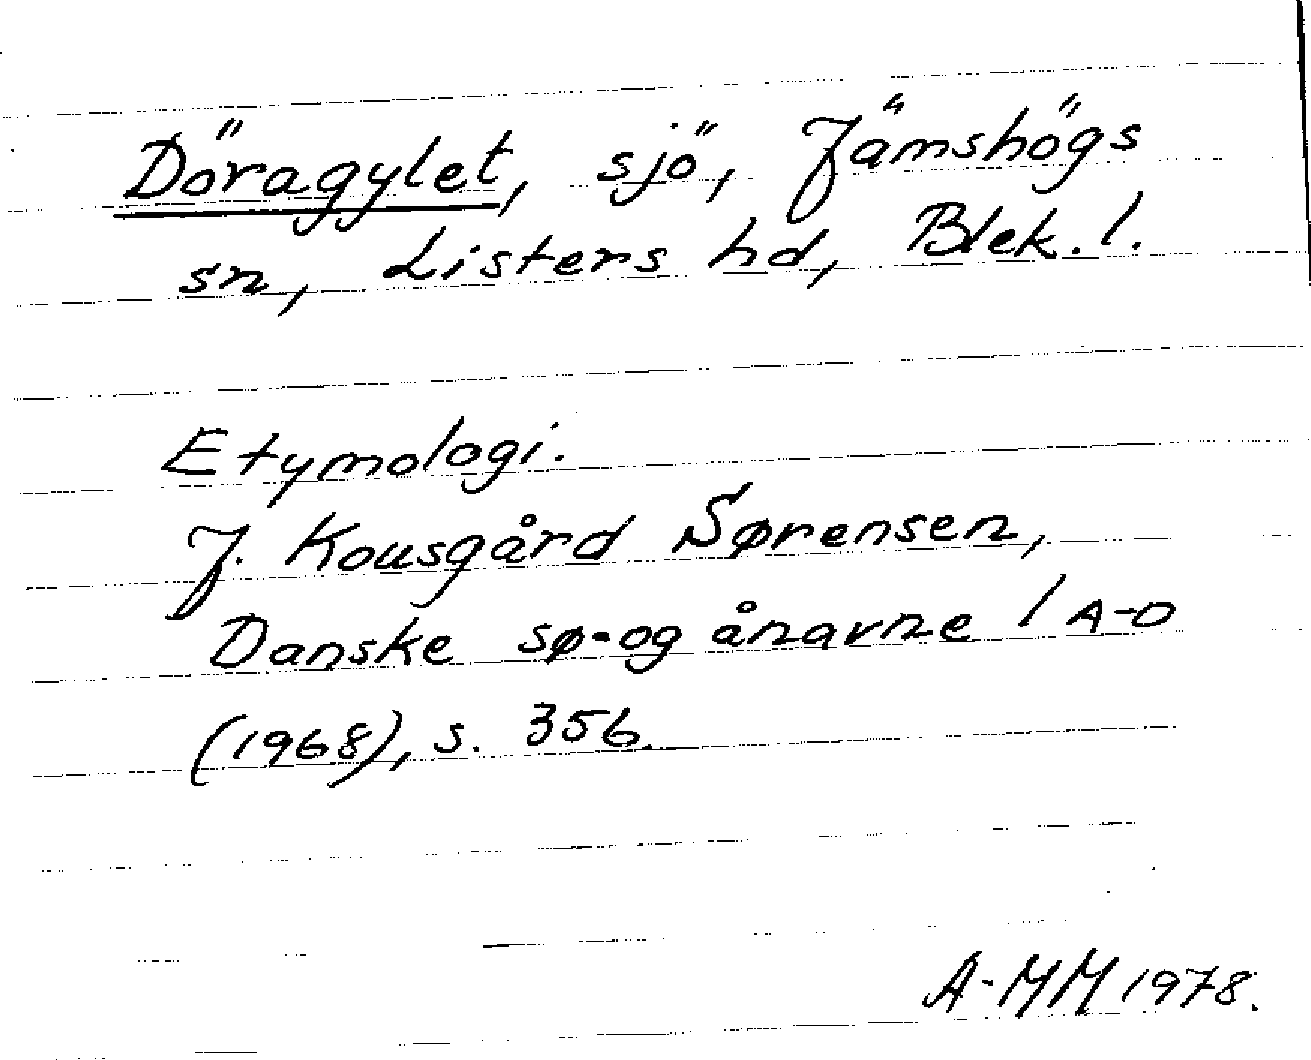 Döragylet, sjö, Jämshögs
sn, Listers hd, Blek. l.
Etymologi.
J. Kousgård Sørensen,
Danske sø- og ånavne I A-D
(1968), s. 356.
A-MM 1978.